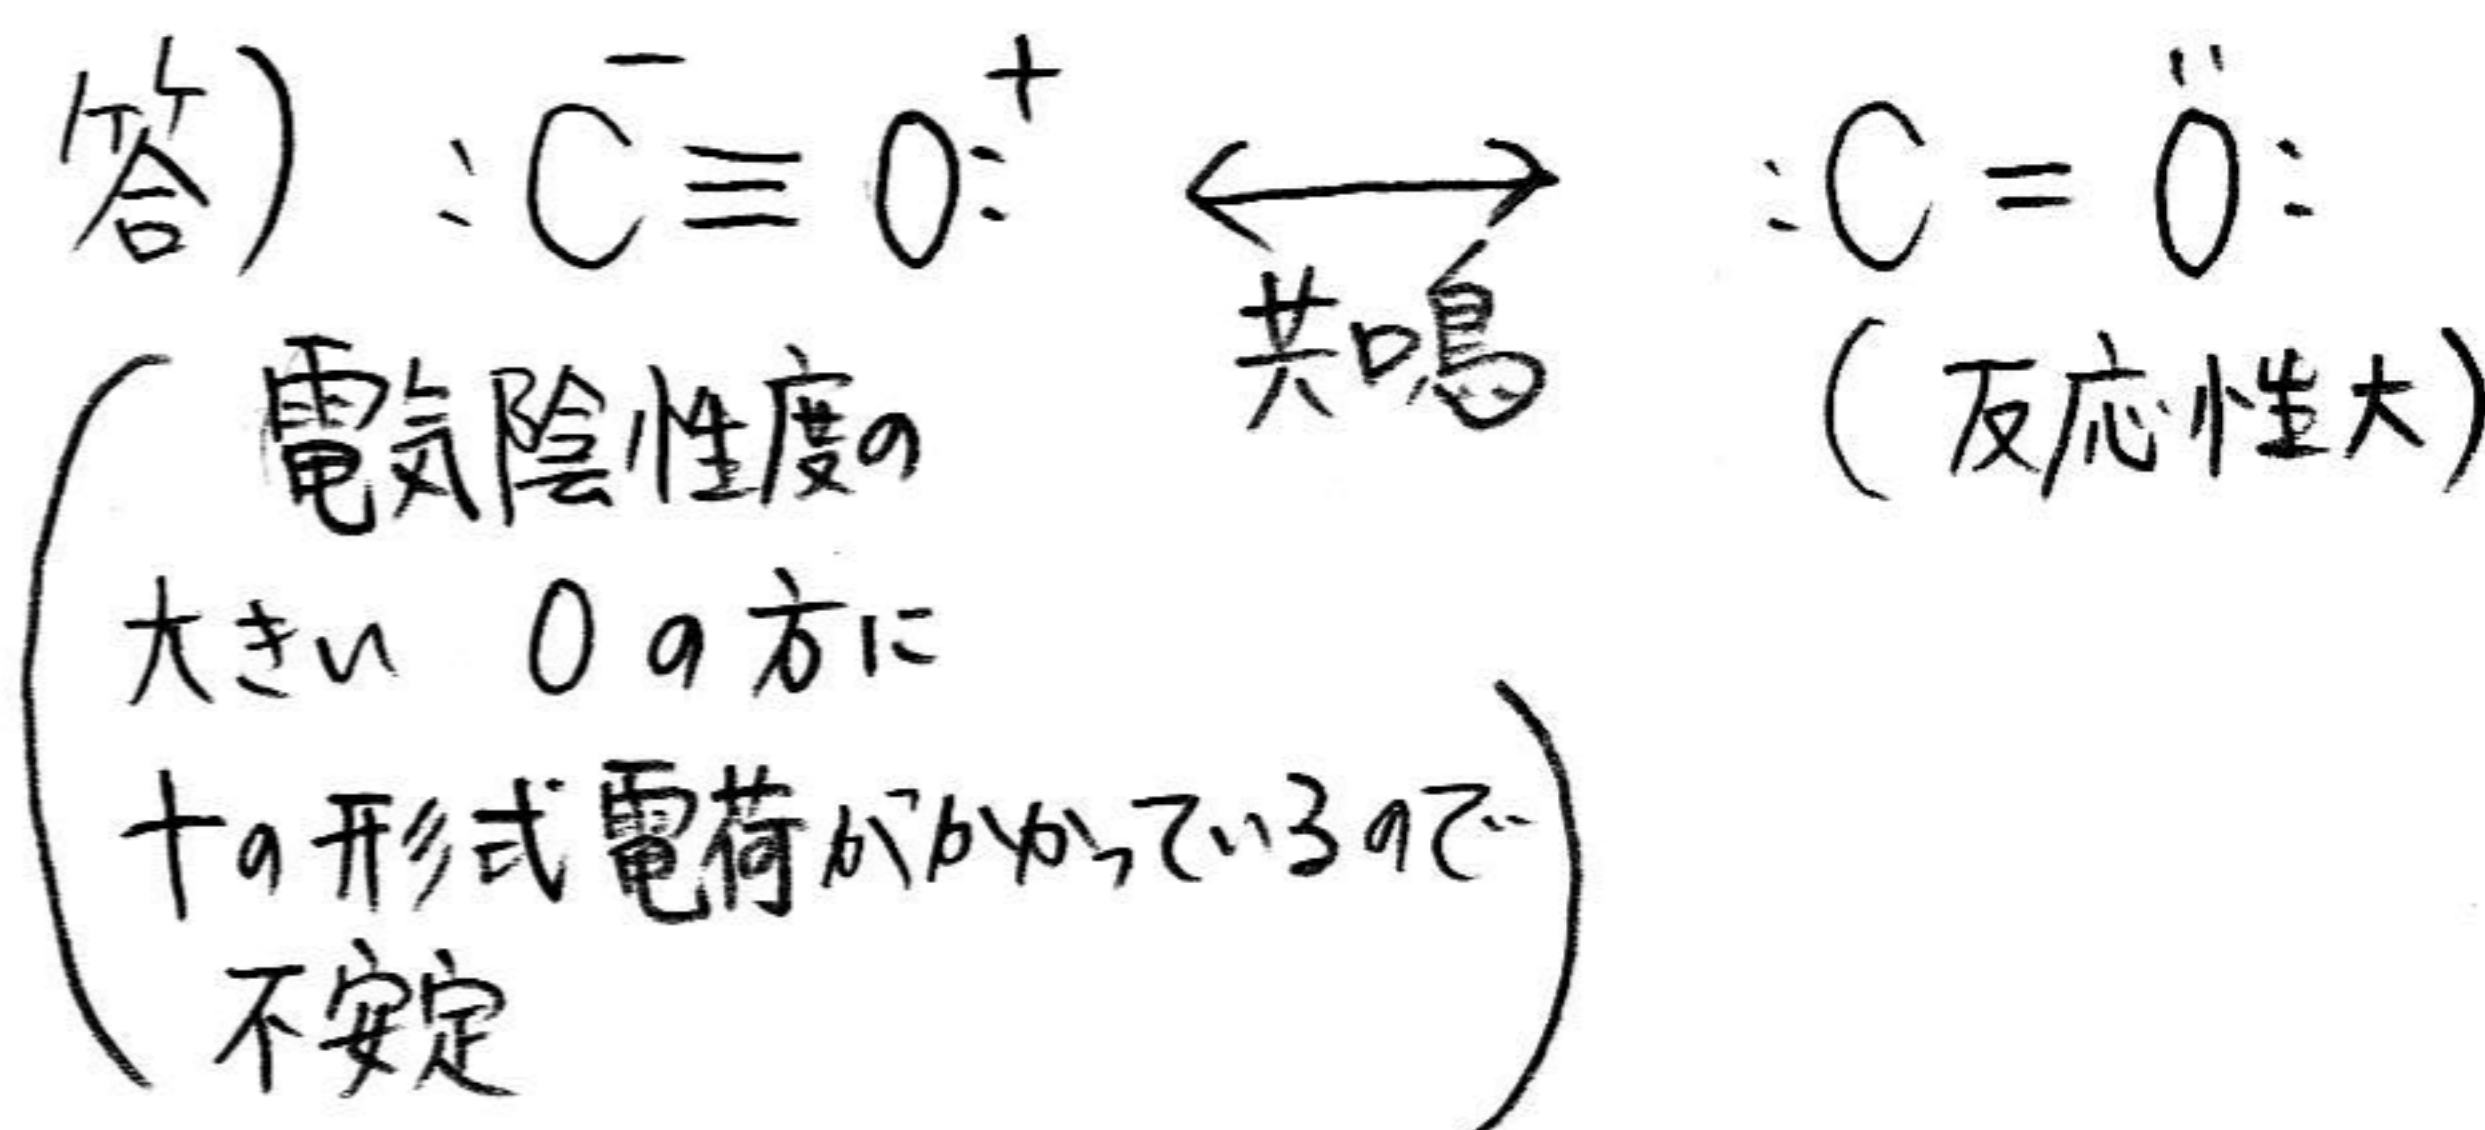 答) :C⁻≡O:⁺ ⟷ :C=Ö:
共鳴
(反応性大)
(電気陰性度の
大きい Oの方に
+の形式電荷がかかっているので
不安定)